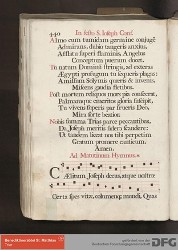 440 In festo S. Joseph Conf.
Almo cum tumidam germine conjugem
Admirans, dubio tangeris anxius,
Afflatu superi flaminis, Angelus
Conceptum puerum docet.
Tu natum Dominum stringis, ad exteras
Ægypti profugum tu sequeris plagas:
Amissum Solymis quæris et invenis,
Miscens gaudia fletibus.
Post mortem reliquos consecrat,
Palmamque emeritos gloria suscipit,
Tu vivens superis par frueris Deo,
Mira sorte beatior.
Nobis summa Trias parce precantibus,
Da Joseph meritis sidera scandere:
Ut tandem liceat nos tibi perpetim
Gratum promere canticum.
Amen.
Ad Matutinum Hymnus.
Cælitum, Joseph, decus, atque nostræ
Certa spes vitæ, columenq; mundi, Quas
DFG